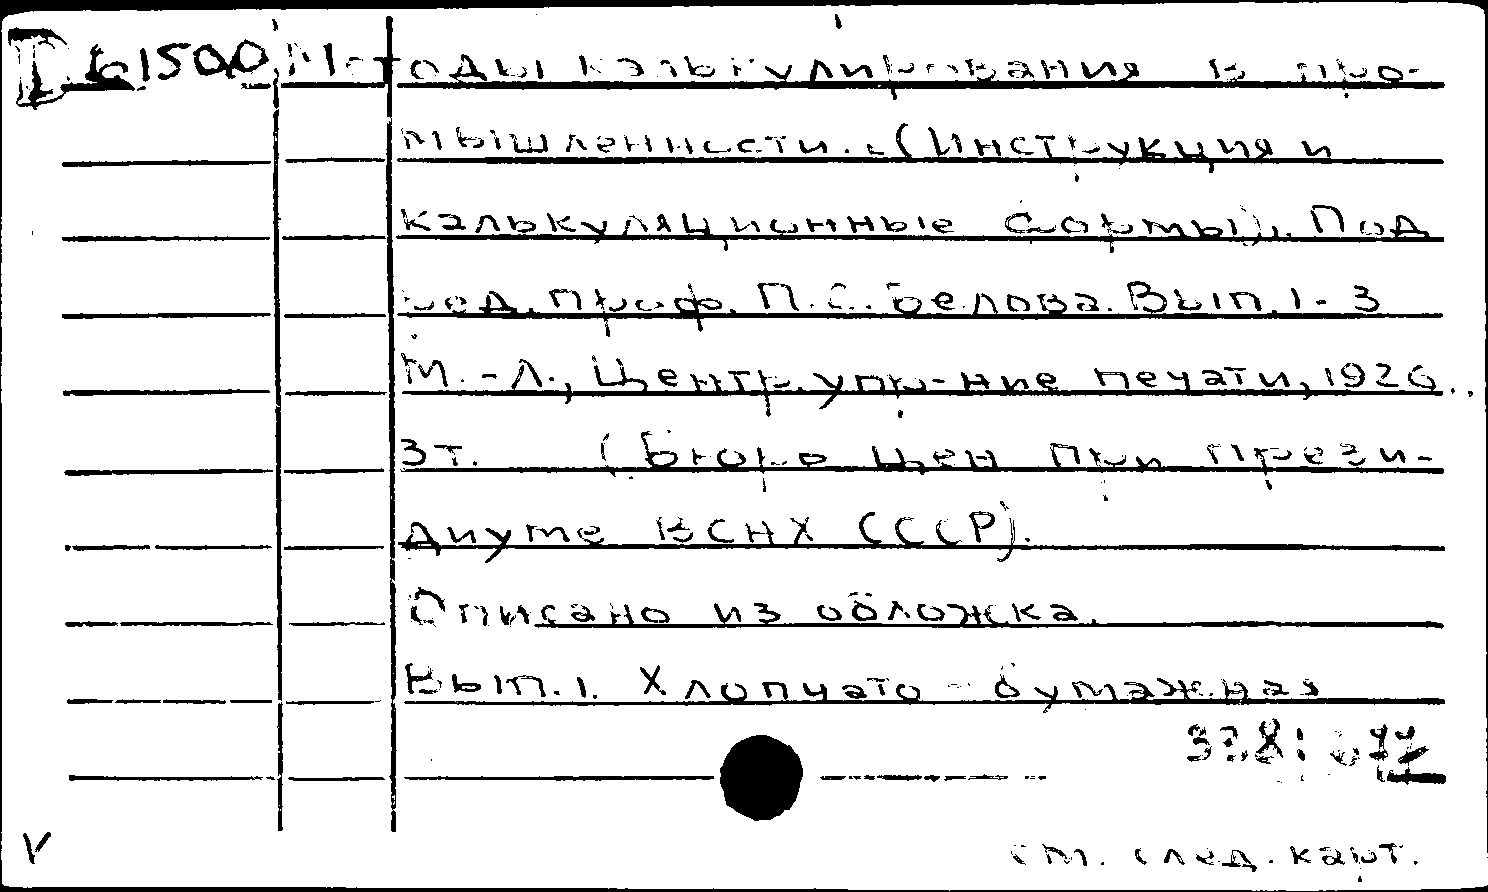 61500 Методы калькулирования в про-
мышленности. (Инструкция и
калькуляционные формы). Под
ред. проф. П.С. Белова. Вып. 1-3
М.-Л., Центр. упр-ние печати, 1926..
3т. (Бюро цен при Прези-
диуме ВСНХ СССР).
Описано из обложка.
Вып. 1. Хлопчато-бумажная
см. след. карт.
V